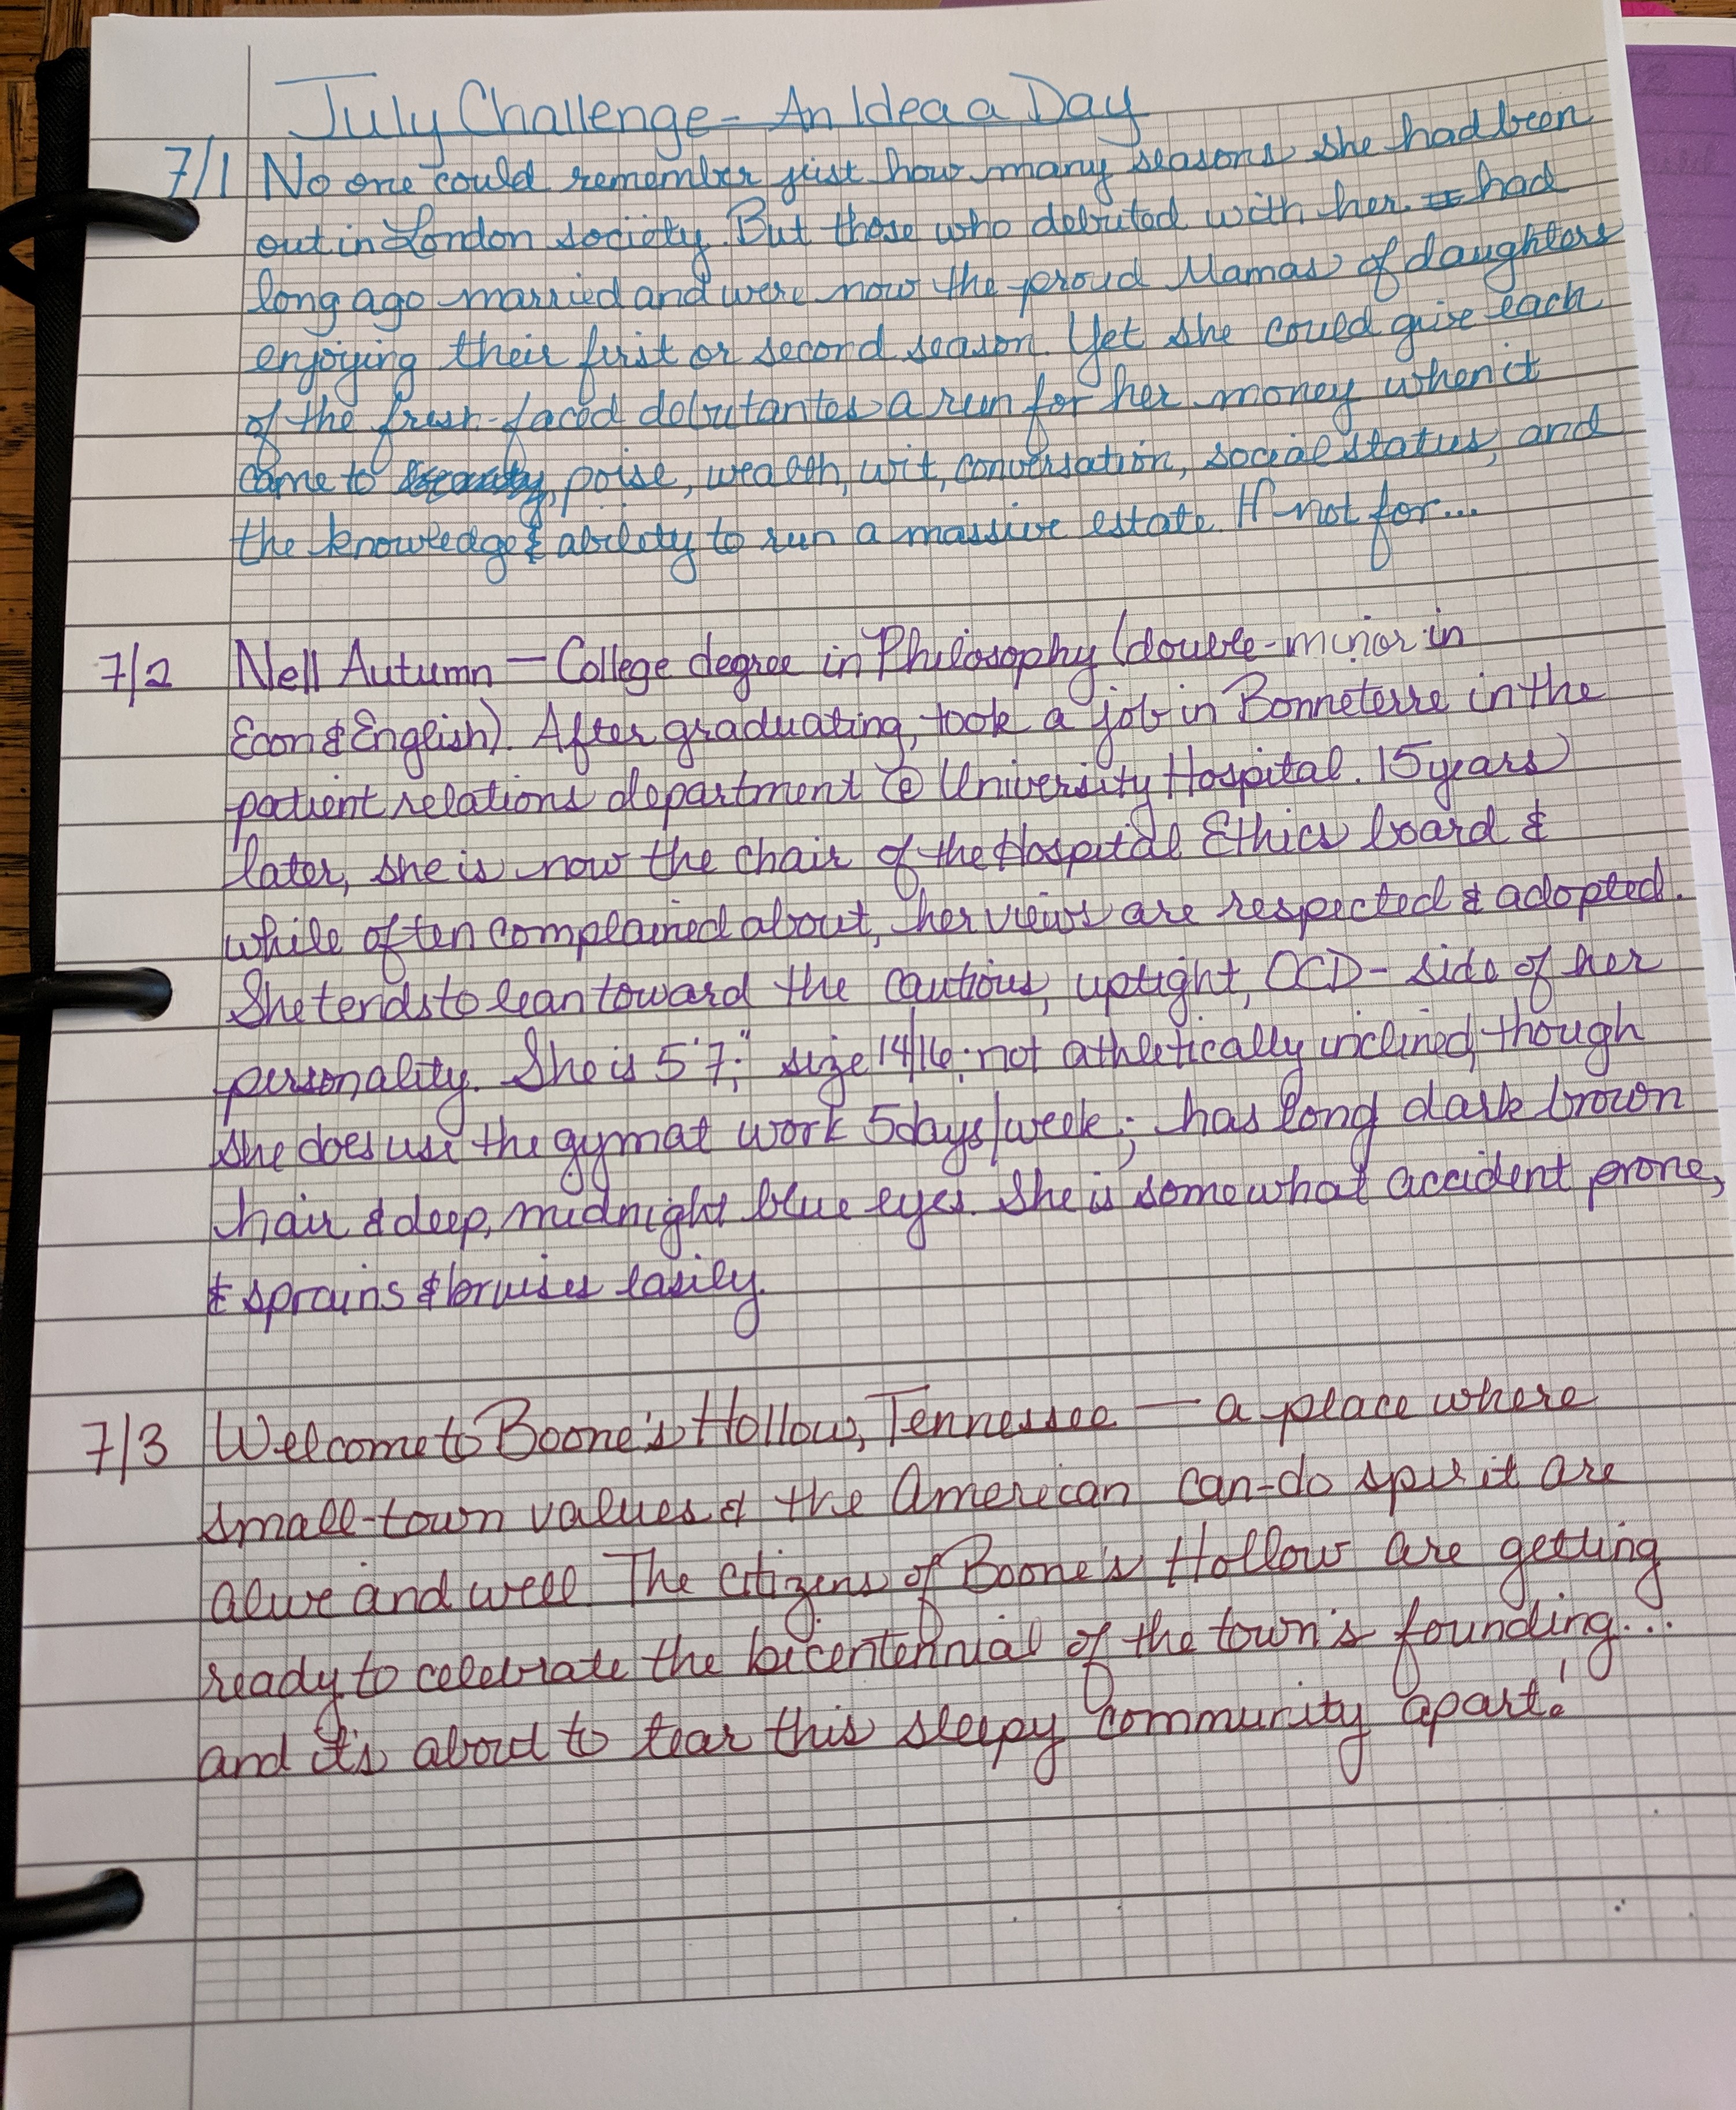 July Challenge - An Idea a Day
7/1 No one could remember just how many seasons she had been
out in London society. But those who debuted with her had
long ago married and were now the proud Mamas of daughters
enjoying their first or second season. Yet she could give each
of the fresh-faced debutantes a run for her money when it
came to beauty, poise, wealth, wit, conversation, social status, and
the knowledge & ability to run a massive estate. If not for...
7/2 Nell Autumn — College degree in Philosophy (double-minor in
Econ & English). After graduating, took a job in Bonneterre in the
patient relations department @ University Hospital. 15 years
later, she is now the chair of the Hospital Ethics board &
while often complained about, her views are respected & adopted.
She tends to lean toward the cautious, uptight, OCD- side of her
personality. She is 5'7"; size 14/16; not athletically inclined, though
she does use the gym at work 5 days/week; has long dark brown
hair & deep, midnight blue eyes. She is somewhat accident prone,
& sprains & bruises easily.
7/3 Welcome to Boone's Hollow, Tennessee — a place where
small-town values & the American can-do spirit are
alive and well. The citizens of Boone's Hollow are getting
ready to celebrate the bicentennial of the town's founding...
and it's about to tear this sleepy community apart!